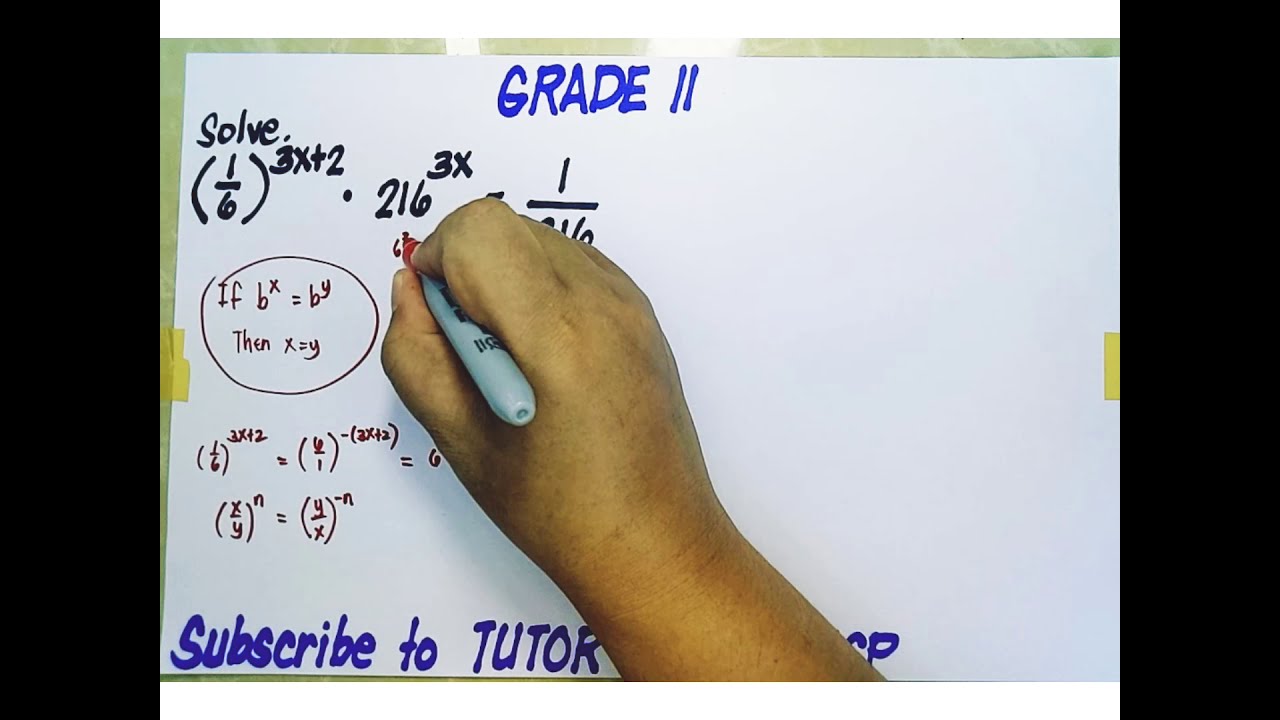 GRADE 11
Solve.
(1/6)^3x+2 · 216^3x = 1/216
6^3
If b^x = b^y
Then x=y
(1/6)^3x+2 = (6/1)^-(3x+2) = 6
(x/y)^n = (y/x)^-n
Subscribe to TUTOR